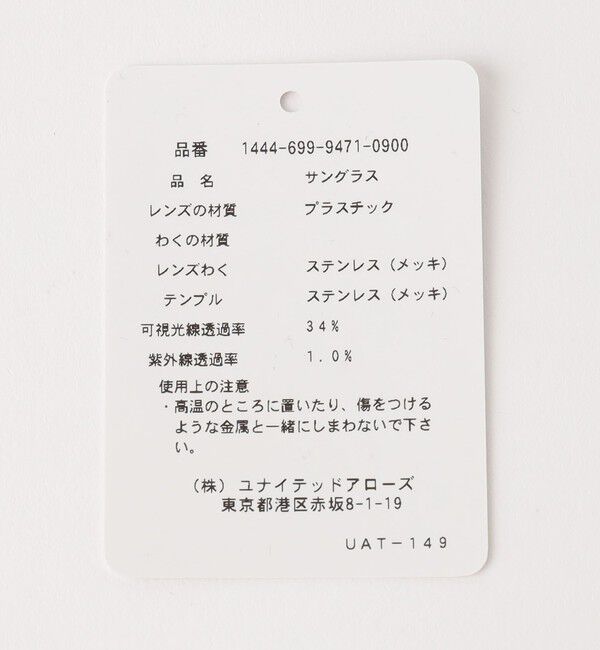 品番 1444-699-9471-0900
品 名 サングラス
レンズの材質 プラスチック
わくの材質
レンズわく ステンレス（メッキ）
テンプル ステンレス（メッキ）
可視光線透過率 34%
紫外線透過率 1.0%
使用上の注意
・高温のところに置いたり、傷をつける
ような金属と一緒にしまわないで下さ
い。
（株）ユナイテッドアローズ
東京都港区赤坂8-1-19
UAT-149